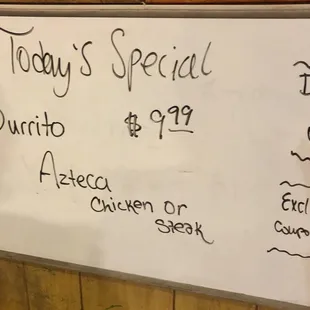 Today's Special
Burrito $ 9.99
Azteca
Chicken or
Steak
Excl
Coupo